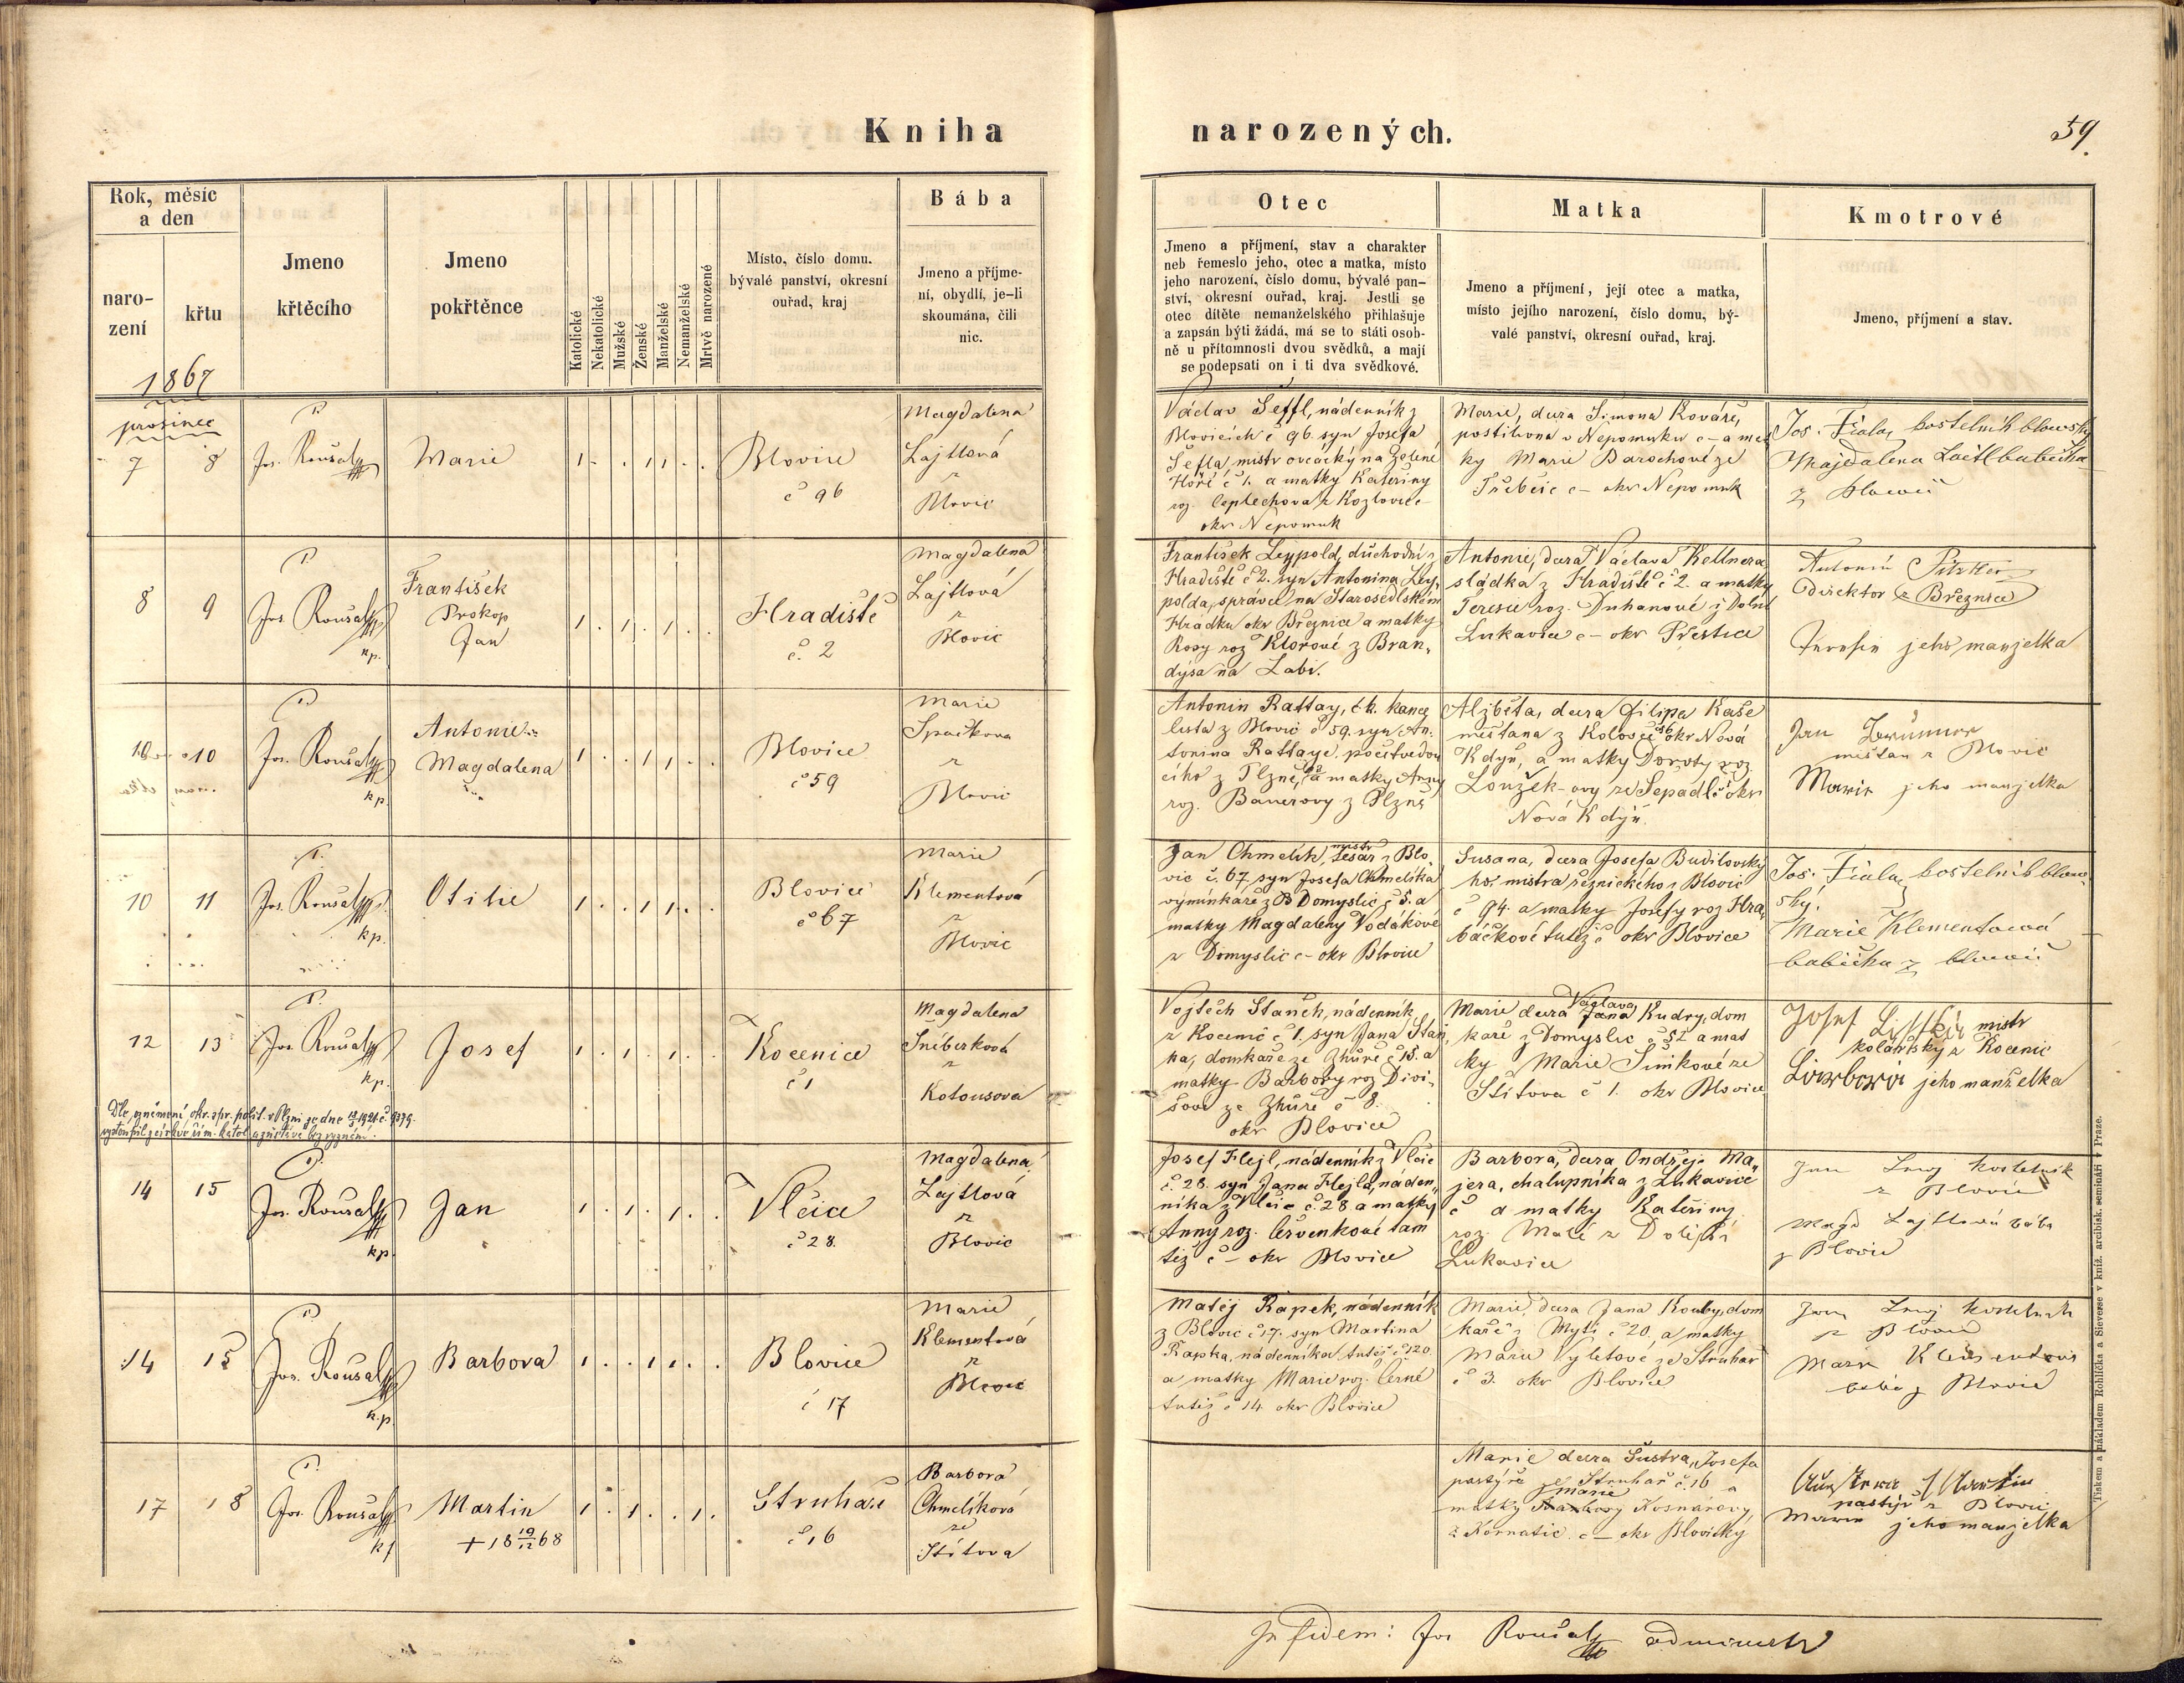 Kniha narozených.
59.
Rok, měsíc
a den
naro-
zení
křtu
Jmeno
křtěcího
Jmeno
pokřtěnce
Katolické
Nekatolické
Mužské
Ženské
Manželské
Nemanželské
Mrtvě narozené
Místo, číslo domu.
bývalé panství, okresní
ouřad, kraj
Bába
Jmeno a příjme-
ní, obydlí, je-li
skoumána, čili
nic.
Otec
Jmeno a příjmení, stav a charakter
neb řemeslo jeho, otec a matka, místo
jeho narození, číslo domu, bývalé pan-
ství, okresní ouřad, kraj. Jestli se
otec dítěte nemanželského přihlašuje
a zapsán býti žádá, má se to státi osob-
ně u přítomnosti dvou svědků, a mají
se podepsati on i ti dva svědkové.
Matka
Jmeno a příjmení, její otec a matka,
místo jejího narození, číslo domu, bý-
valé panství, okresní ouřad, kraj.
Kmotrové
Jmeno, příjmení a stav.
1867
prosinec
7
8
P.
Jos. Roušal
Marie
1 . . 1 1 . .
Blovice
č 96
Magdalena
Lajtlová
z
Blovic
Václav Šeffl, nádenník z
Blovicích č 96. syn Josefa
Šefla, mistr ovčácký na Zelené
Hoře č 1. a matky Kateřiny
roz. Ceplechova z Kozlovic č
okr Nepomuk
Marie, dcera Simona Kováře,
postiliona v Nepomuku č – a mat
ky Marie Barochové ze
Třebčic č – okr Nepomuk
Jos. Fiala, kostelník blowský
Majdalena Laitl babička
z blowic
8
9
P.
Jos Roušal
kp.
František
Prokop
Jan
1 . 1 . 1 . .
Hradiště
č. 2
Magdalena
Lajtlová
z
Blovic
František Leypold, důchodní z
Hradiště č 2. syn Antonína Ley,
polda, správce na Starosedlském
Hrádku okr Březnice a matky
Rosy roz Klorové z Bran,
dýsa na Labi.
Antonie, dcera Václava Kellnera,
sládka z Hradiště č 2. a matky
Teresie roz. Duhanové z Dolní
Lukavice č – okr Přestice
Antonín
direktor z Březnice
jeho manzelka
10
10
P.
Jos. Roušal
kp.
Antonie
Magdalena
1 . . 1 1 . .
Blovice
č 59
Marie
Spačkova
z
Blovic
Antonin Rattay, c.k. kance
lista z Blovic č 59. syn An.
tonina Rattaye. počtvedou
cího z Plzně, a matky Anny
roz. Bauerovy z Plzně
Alzběta, dcera Filipa Kaše
měštana z Kolovče 56 okr Nová
Kdyň, a matky Doroty roz.
Loužek-ovy ze Sepadl č okr
Nová Kdyň.
Jan
měštan z Blovic
Marie jeho manzelka
10
11
P.
Jos. Roušal
kp.
Otilie
1 . . 1 1 . .
Blovice
č 67
Marie
Klementová
z
Blovic
Jan Chmelík, mistr tesař z Blo,
vic č. 67. syn Josefa Chmelíka
výminkáře z Domyslic č 5. a
matky Magdaleny Vodákové
z Domyslic č – okr Blovice
Susana, dcera Josefa Budilovský
ho, mistra řeznického z Blovic
č 94. a matky Josefy roz Hra,
báčkové tutéž č okr Blovice
Jos. Fiala, kostelník blow,
ský.
Marie Klementowá
babička z blowic
12
13
P.
Jos. Roušal
kp.
Josef
1 . 1 . 1 . .
Kocenice
č 1
Magdalena
Šneberková
z
Kotousova
Dle oznámení okr. spr. polit. v Plzni ze dne 1921 č. 9379
vystoupil z církve řím. katol. a zůstává bez vyznání.
Vojtěch Staněk, nádenník
z Kocenic č 1. syn Jana Staň,
ka, domkaře ze Zhůře č 15. a
matky Barbory roz Divi,
šové ze Zhůře č 8.
okr Blovice
Marie dcera Václava Jana Kudry, dom
kaře z Domyslic č 52 a mat
ky Marie Šimkové ze
Štítova č 1. okr Blovice
Josef mistr
kolářský z Kocenic
Barbora jeho manželka
14
15
P.
Jos. Roušal
kp.
Jan
1 . 1 . 1 . .
Vlčice
č 28.
Magdalena
Lajtlová
z
Blovic
Josef Hejl, nádenník z Vlčic
č. 28. syn Jana Hejla, náden,
níka z Vlčic č. 28 a matky
Anny roz. Červenkové tam
též č – okr Blovice
Barbora, dcera Ondřeje Ma,
jera, chalupníka z Lukavice
č a matky Kateřiny
roz. Malé z Dolejší
Lukavice
Jan kostelník
z Blovic
Magd Lajtlová bába
z Blovic
14
15
P.
Jos. Roušal
k.p.
Barbora
1 . . 1 1 . .
Blovice
č 17
Marie
Klementová
z
Blovic
Matěj Rapek, nádenník
z Blovic č 17. syn Martina
Rapka, nádenníka tutéž č 120.
a matky Marie roz. Černé
tutéž č 14. okr Blovice
Marie, dcera Jana Kouby, dom
kaře z Mytí č 20. a matky
Marie Vyletové ze Struhař
č 3. okr Blovice
Jan kostelník
z Blovic
Marie Klementova
z Blovic
17
18
P.
Jos. Roušal
Martin
+ 18 19/12 68
1 . 1 . . 1 .
Struhaře
č 16
Barbora
Chmelíková
ze
Štítova
Marie dcera Šustra, Josefa
pastýře ze Struhař č. 16 a
matky Marie Barbory Kosnarovy,
z Kornatic č – okr Blovický
Martin
pastýř z Blovic
Marie jeho manzelka
In fidem: Jos Roušal administr
Tiskem a nákladem Rohlíčka a Sievesse v kníž. arcibisk. semináři v Praze.